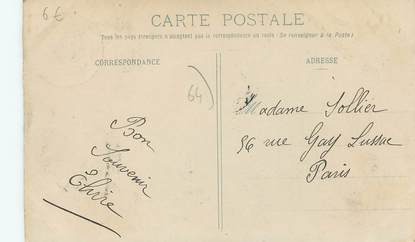 6€
CARTE POSTALE
Tous les pays étrangers n'acceptent pas la correspondance au recto. (Se renseigner à la Poste)
CORRESPONDANCE
ADRESSE
64
Madame Sollier
56 rue Gay Lussac
Paris
Bon
Souvenir